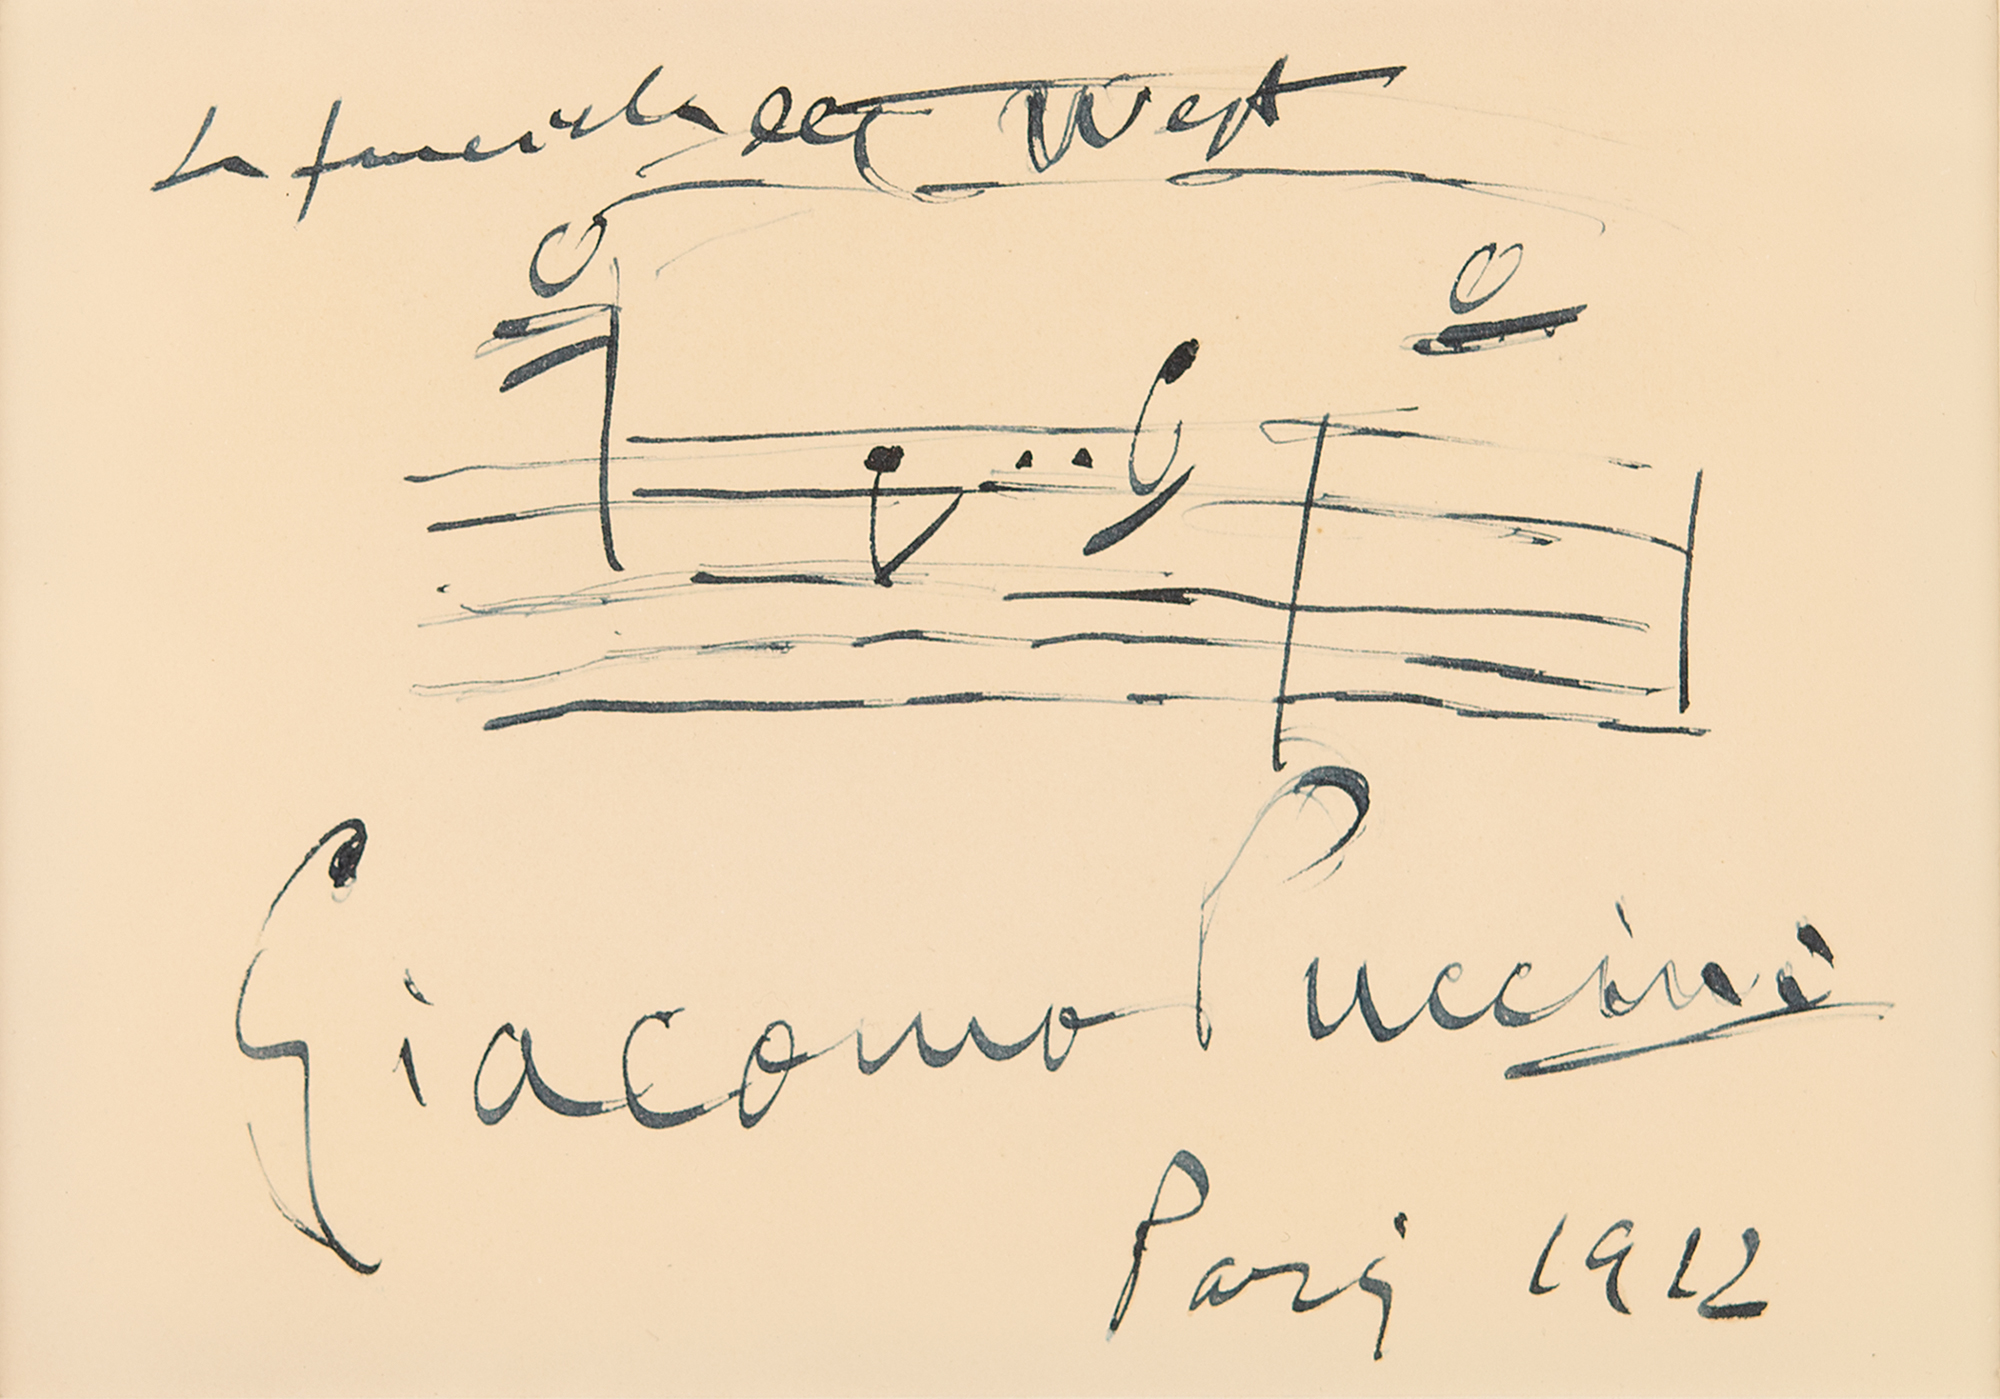 La fanciulla del West
Giacomo Puccini
Parigi 1912